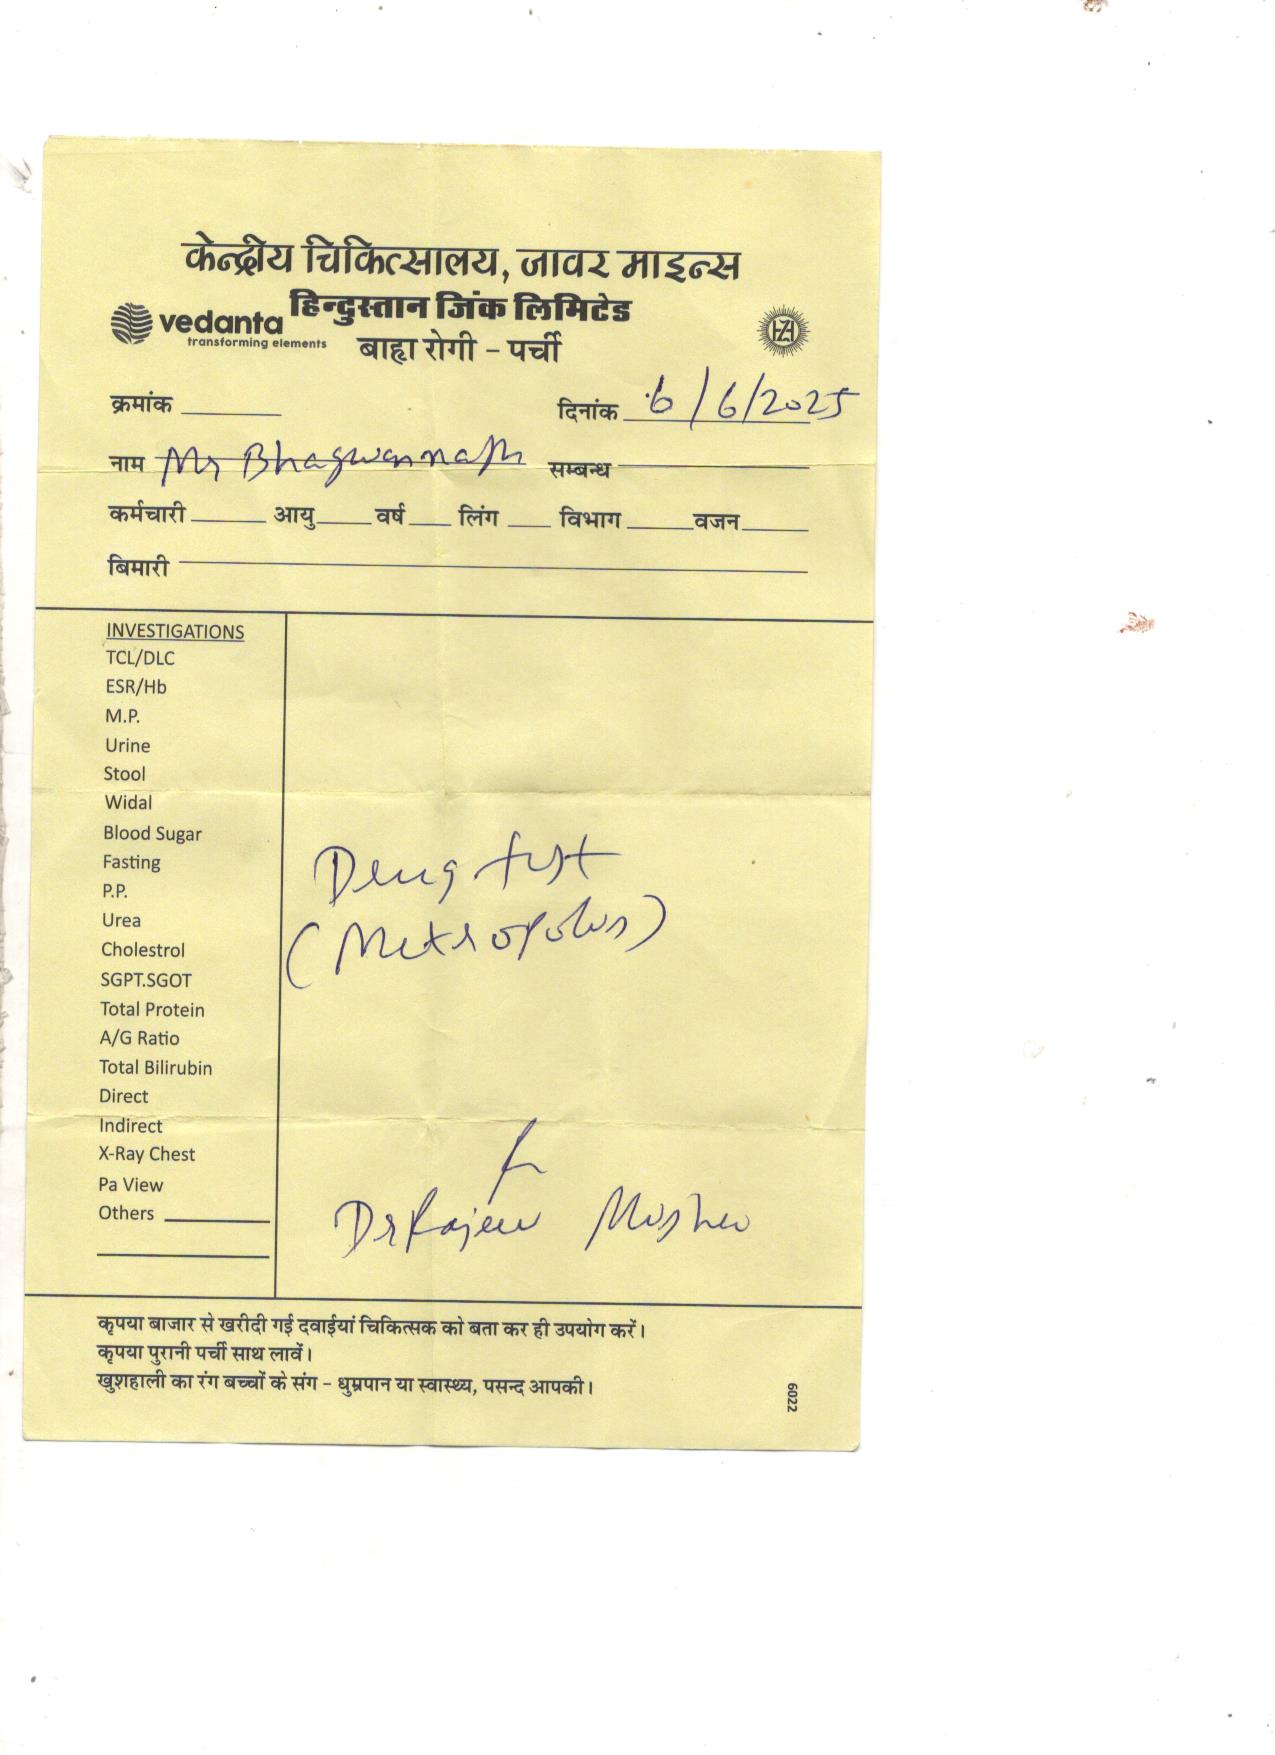 केन्द्रीय चिकित्सालय, जावर माइन्स
हिन्दुस्तान जिंक लिमिटेड
vedanta
transforming elements
बाह्य रोगी - पर्ची
HZL
क्रमांक दिनांक 6/6/2025
नाम Mr Bhagwannath सम्बन्ध
कर्मचारी आयु वर्ष लिंग विभाग वजन
बिमारी
INVESTIGATIONS
TCL/DLC
ESR/Hb
M.P.
Urine
Stool
Widal
Blood Sugar
Fasting
P.P.
Urea
Cholestrol
SGPT.SGOT
Total Protein
A/G Ratio
Total Bilirubin
Direct
Indirect
X-Ray Chest
Pa View
Others
Drug test
(Metropolis)
Dr Rajeev
कृपया बाजार से खरीदी गई दवाईयां चिकित्सक को बता कर ही उपयोग करें।
कृपया पुरानी पर्ची साथ लावें।
खुशहाली का रंग बच्चों के संग - धुम्रपान या स्वास्थ्य, पसन्द आपकी।
6022